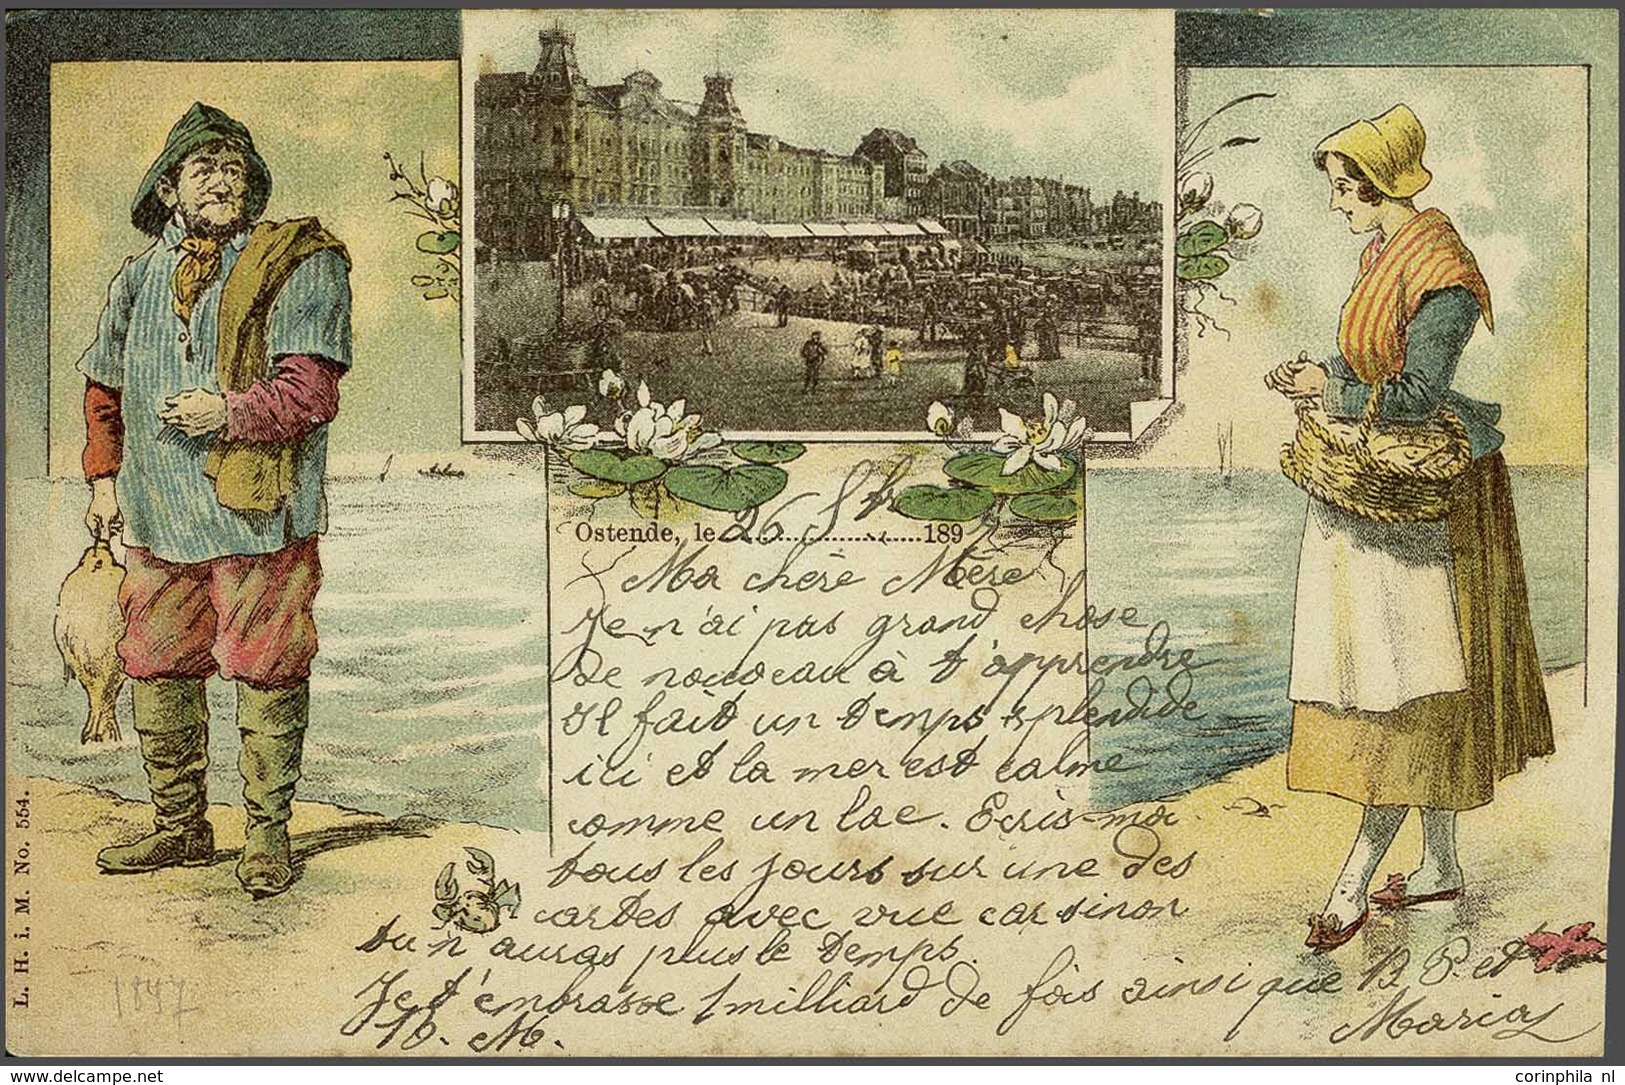 Ostende, le 26 8bre 1897
Ma chère Mère
Je n'ai pas grand chose
de nouveau à t'apprendre
Il fait un temps splendide
ici et la mer est calme
comme un lac. Ecris-moi
tous les jours sur une des
cartes avec vue car sinon
tu n'auras plus le temps.
Je t'embrasse 1 milliard de fois ainsi que B. P. et
M. Maria
L. H. i. M. No. 554.
1897
www.delcampe.net
corinphila nl